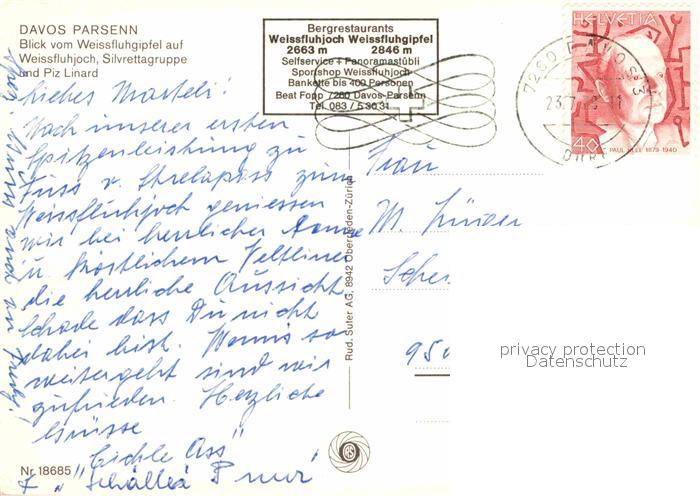 DAVOS PARSENN
Blick vom Weissfluhgipfel auf
Weissfluhjoch, Silvrettagruppe
und Piz Linard
Bergrestaurants
Weissfluhjoch Weissfluhgipfel
2663 m 2846 m
Selfservice + Panoramastübli
Sportshop Weissfluhjoch
Bankette bis 400 Personen
Beat Fopp 7260 Davos-Parsenn
Tel. 083 / 5 30 31
HELVETIA
40
PAUL KLEE 1879-1940
7260 DAVOS
DORF
Liebes Marteli!
Nach unserer ersten
Spitzenleistung zu
Fuss v. Strelapass zum
Weissfluhjoch geniessen
wir bei herrlicher Sonne
u. köstlichem Veltliner
die herrliche Aussicht.
Schade dass Du nicht
dabei bist. Wenns so
weitergeht sind wir
zufrieden. Herzliche
Grüsse
Frau
M.
950
Rud. Suter AG, 8942 Oberrieden-Zürich
Nr. 18685
privacy protection
Datenschutz